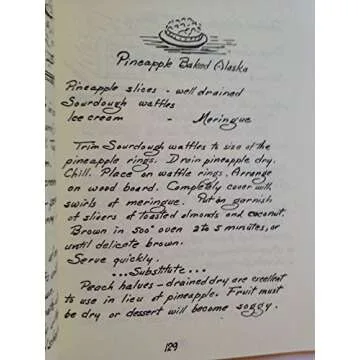 Pineapple Baked Alaska
Pineapple slices - well drained
Sourdough waffles
Ice cream - Meringue
Trim Sourdough waffles to size of the
pineapple rings. Drain pineapple dry.
Chill. Place on waffle rings. Arrange
on wood board. Completely cover with
swirls of meringue. Put on garnish
of slivers of toasted almonds and coconut.
Brown in 500° oven 2 to 5 minutes, or
until delicate brown.
Serve quickly.
...Substitute...
Peach halves - drained dry are excellent
to use in lieu of pineapple. Fruit must
be dry or dessert will become soggy.
129